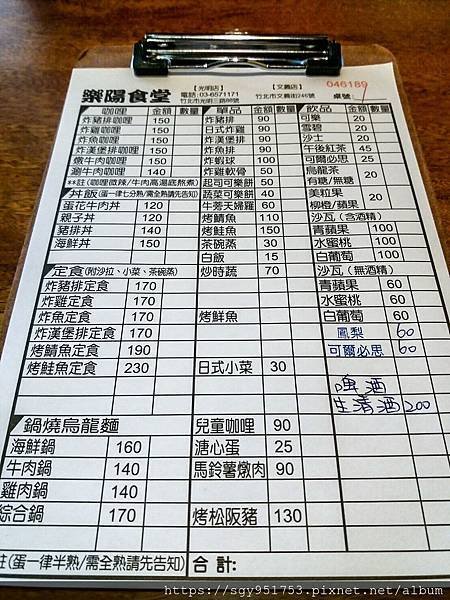 樂陽食堂
【光明店】
電話:03-6571171
竹北市光明三路88號
【文義店】
竹北市文義街246號
046189
桌號:
咖哩 金額 數量
炸豬排咖哩 150
炸雞咖哩 150
炸魚咖哩 150
炸漢堡排咖哩 150
燉牛肉咖哩 150
涮牛肉咖哩 140
**註(咖哩微辣/牛肉高湯底熬煮)
丼飯(蛋一律七分熟/需全熟請先告知)
蛋花牛肉丼 120
親子丼 120
豬排丼 140
海鮮丼 150
定食(附沙拉、小菜、茶碗蒸)
炸豬排定食 170
炸雞定食 170
炸魚定食 170
炸漢堡排定食 170
烤鯖魚定食 190
烤鮭魚定食 230
鍋燒烏龍麵
海鮮鍋 160
牛肉鍋 140
雞肉鍋 140
綜合鍋 170
註(蛋一律半熟/需全熟請先告知)
單品 金額 數量
炸豬排 90
日式炸雞 90
炸漢堡排 90
炸魚排 90
炸蝦球 100
炸雞軟骨 50
起司可樂餅 50
蔬菜可樂餅 40
牛蒡天婦羅 60
烤鯖魚 110
烤鮭魚 150
茶碗蒸 30
白飯 15
炒時蔬 70
烤鮮魚
日式小菜 30
兒童咖哩 90
溏心蛋 25
馬鈴薯燉肉 90
烤松阪豬 130
合計:
飲品 金額 數量
可樂 20
雪碧 20
沙士 20
午後紅茶 45
可爾必思 25
烏龍茶 20
有糖/無糖
美粒果 20
柳橙/蘋果
沙瓦(含酒精)
青蘋果 100
水蜜桃 100
白葡萄 100
沙瓦(無酒精)
青蘋果 60
水蜜桃 60
白葡萄 60
鳳梨 60
可爾必思 60
啤酒
生清酒 200
https://sgy951753.pixnet.net/album